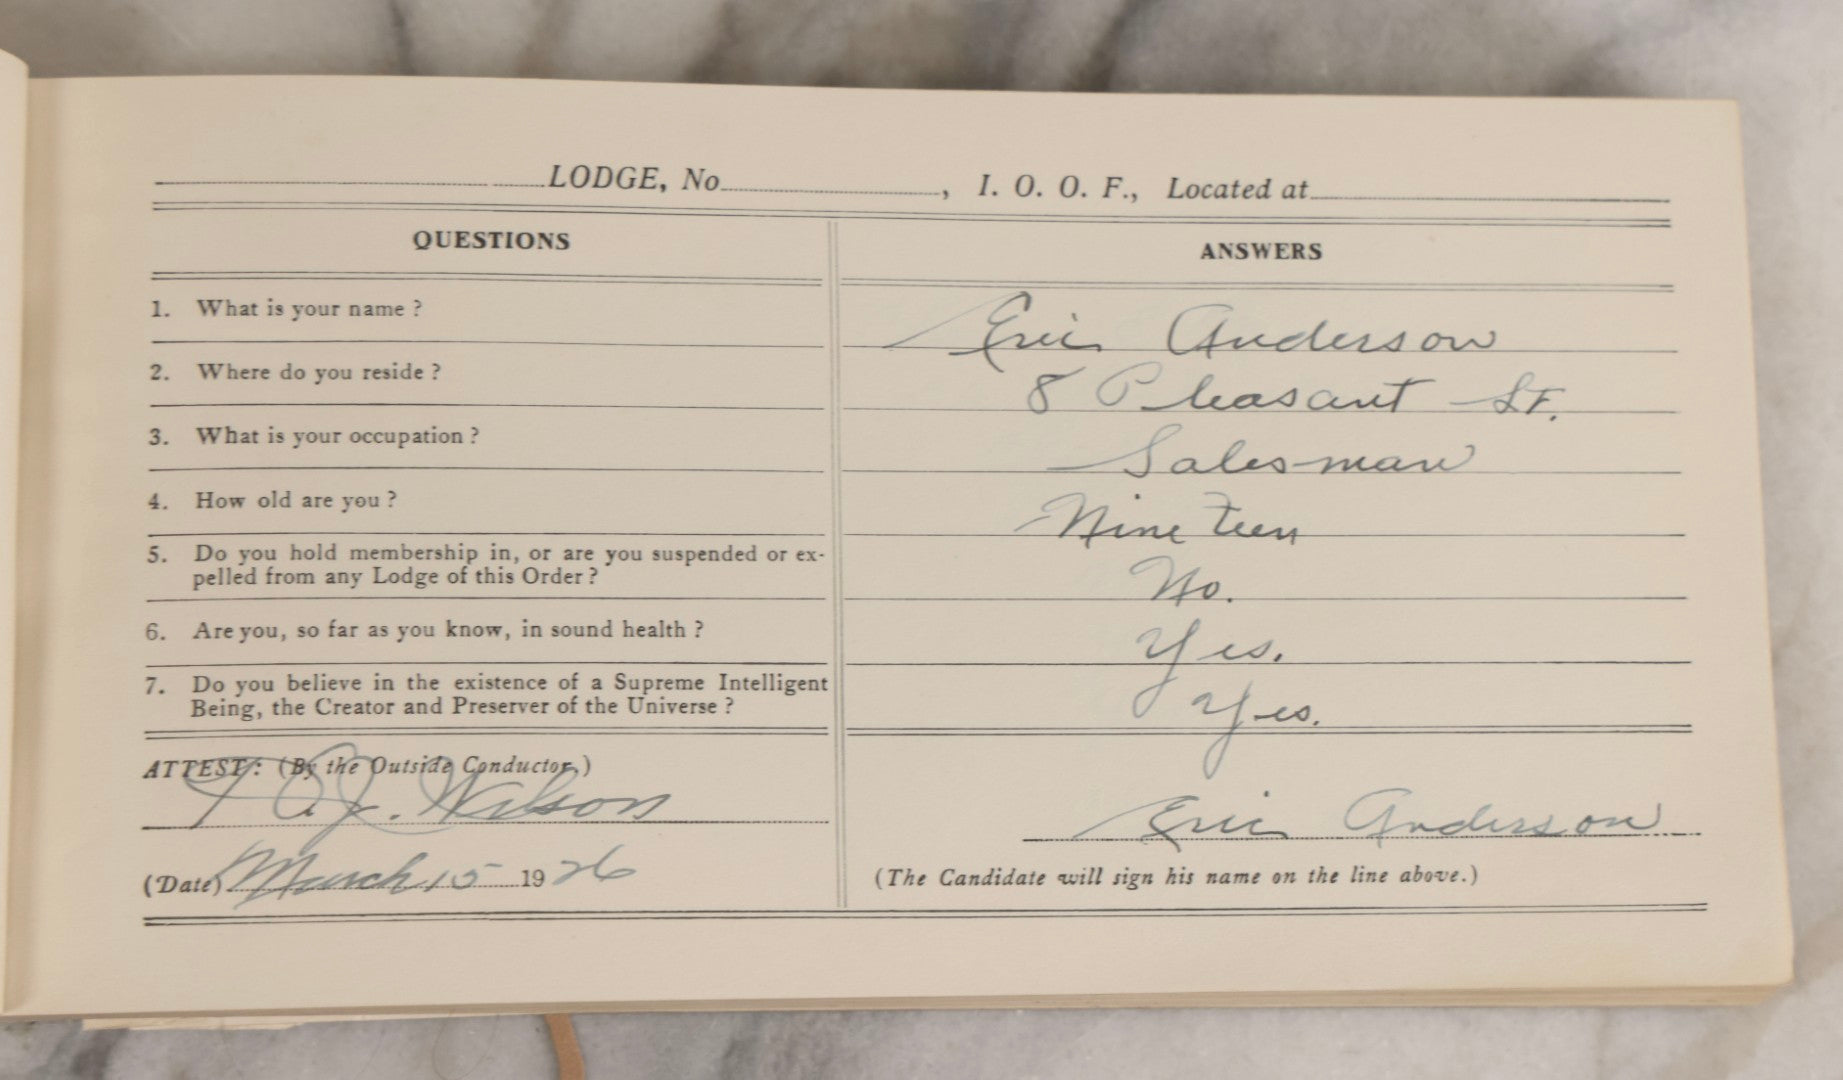 LODGE, No. , I. O. O. F., Located at
QUESTIONS
ANSWERS
1. What is your name ?
Eric Anderson
2. Where do you reside ?
8 Pleasant St.
3. What is your occupation ?
Salesman
4. How old are you ?
Nineteen
5. Do you hold membership in, or are you suspended or ex-
pelled from any Lodge of this Order ?
No.
6. Are you, so far as you know, in sound health ?
Yes.
7. Do you believe in the existence of a Supreme Intelligent
Being, the Creator and Preserver of the Universe ?
Yes.
ATTEST : (By the Outside Conductor.)
Wilson
Eric Anderson
(Date) March 15 1926
(The Candidate will sign his name on the line above.)